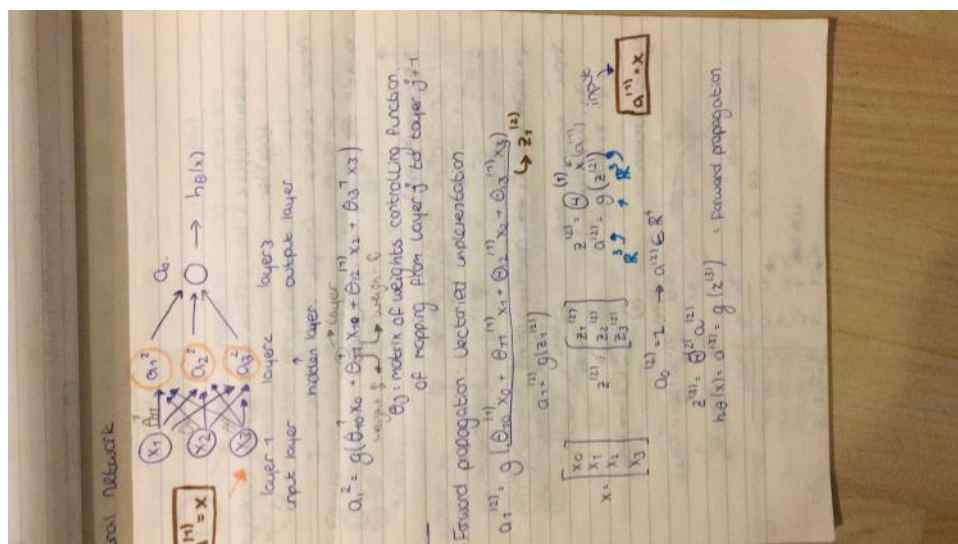 network
a⁽¹⁾ = x
x₁ θ₁₁¹ a₁² a₀.
x₂ a₂² → hθ(x)
x₃ a₃²
layer 1 layer 2 layer 3
input layer output layer
hidden layer
→ layer
a₁² = g(θ₁₀¹x₀ + θ₁₁¹x₁ + θ₁₂⁽¹⁾x₂ + θ₁₃¹x₃)
θj = matrix of weights controlling function
of mapping from layer j to layer j+1
Forward propagation: vectorised implementation.
a₁⁽²⁾ = g(θ₁₀⁽¹⁾x₀ + θ₁₁⁽¹⁾x₁ + θ₁₂⁽¹⁾x₂ + θ₁₃⁽¹⁾x₃)
↳ z₁⁽²⁾
a₁⁽²⁾ = g(z₁⁽²⁾)
x = [x₀ x₁ x₂ x₃] z⁽²⁾ = [z₁⁽²⁾ z₂⁽²⁾ z₃⁽²⁾] z⁽²⁾ = Θ⁽¹⁾x (a⁽¹⁾) input
a⁽²⁾ = g(z⁽²⁾) a⁽¹⁾ = x
R³ R³
a₀⁽²⁾ = 1 → a⁽²⁾ ∈ R⁴
z⁽³⁾ = Θ⁽²⁾a⁽²⁾
hθ(x) = a⁽³⁾ = g(z⁽³⁾) = Forward propagation.